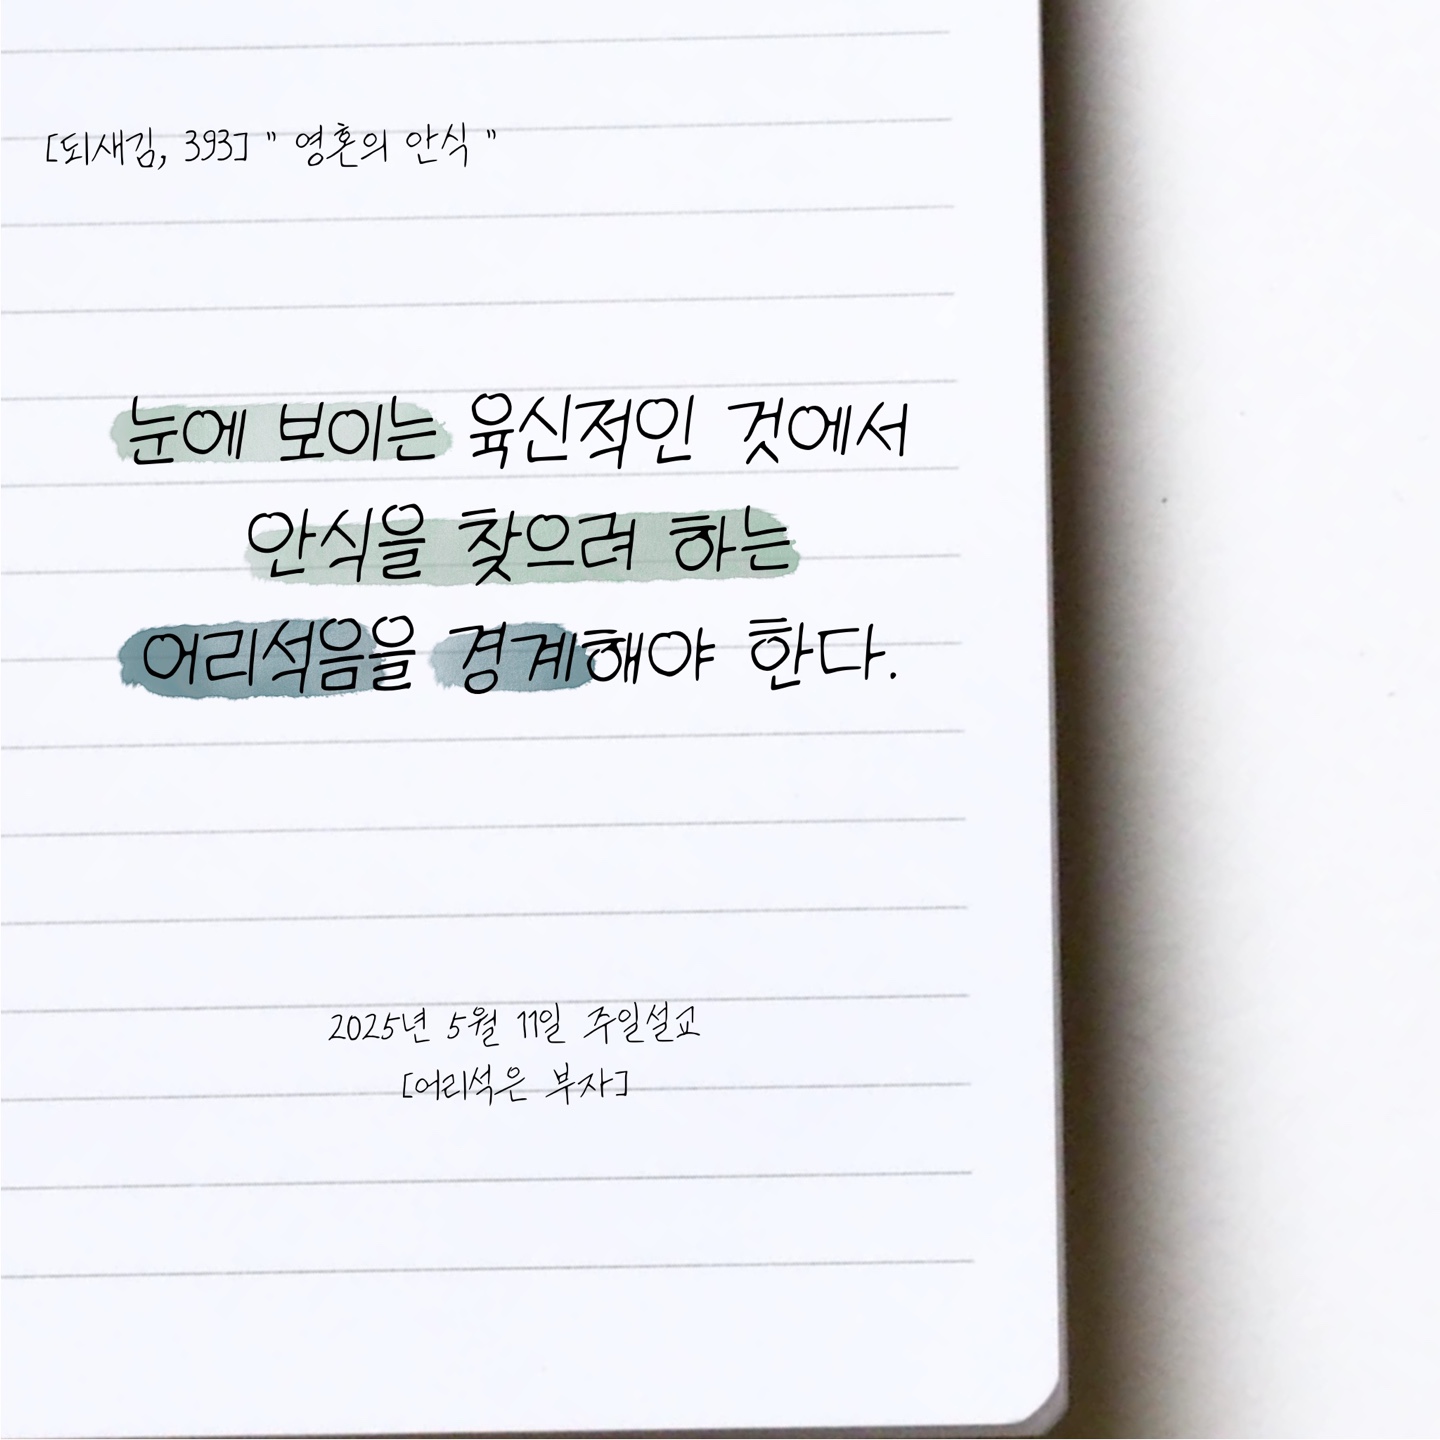 [되새김, 393] " 영혼의 안식 "
눈에 보이는 육신적인 것에서
안식을 찾으려 하는
어리석음을 경계해야 한다.
2025년 5월 11일 주일설교
[어리석은 부자]